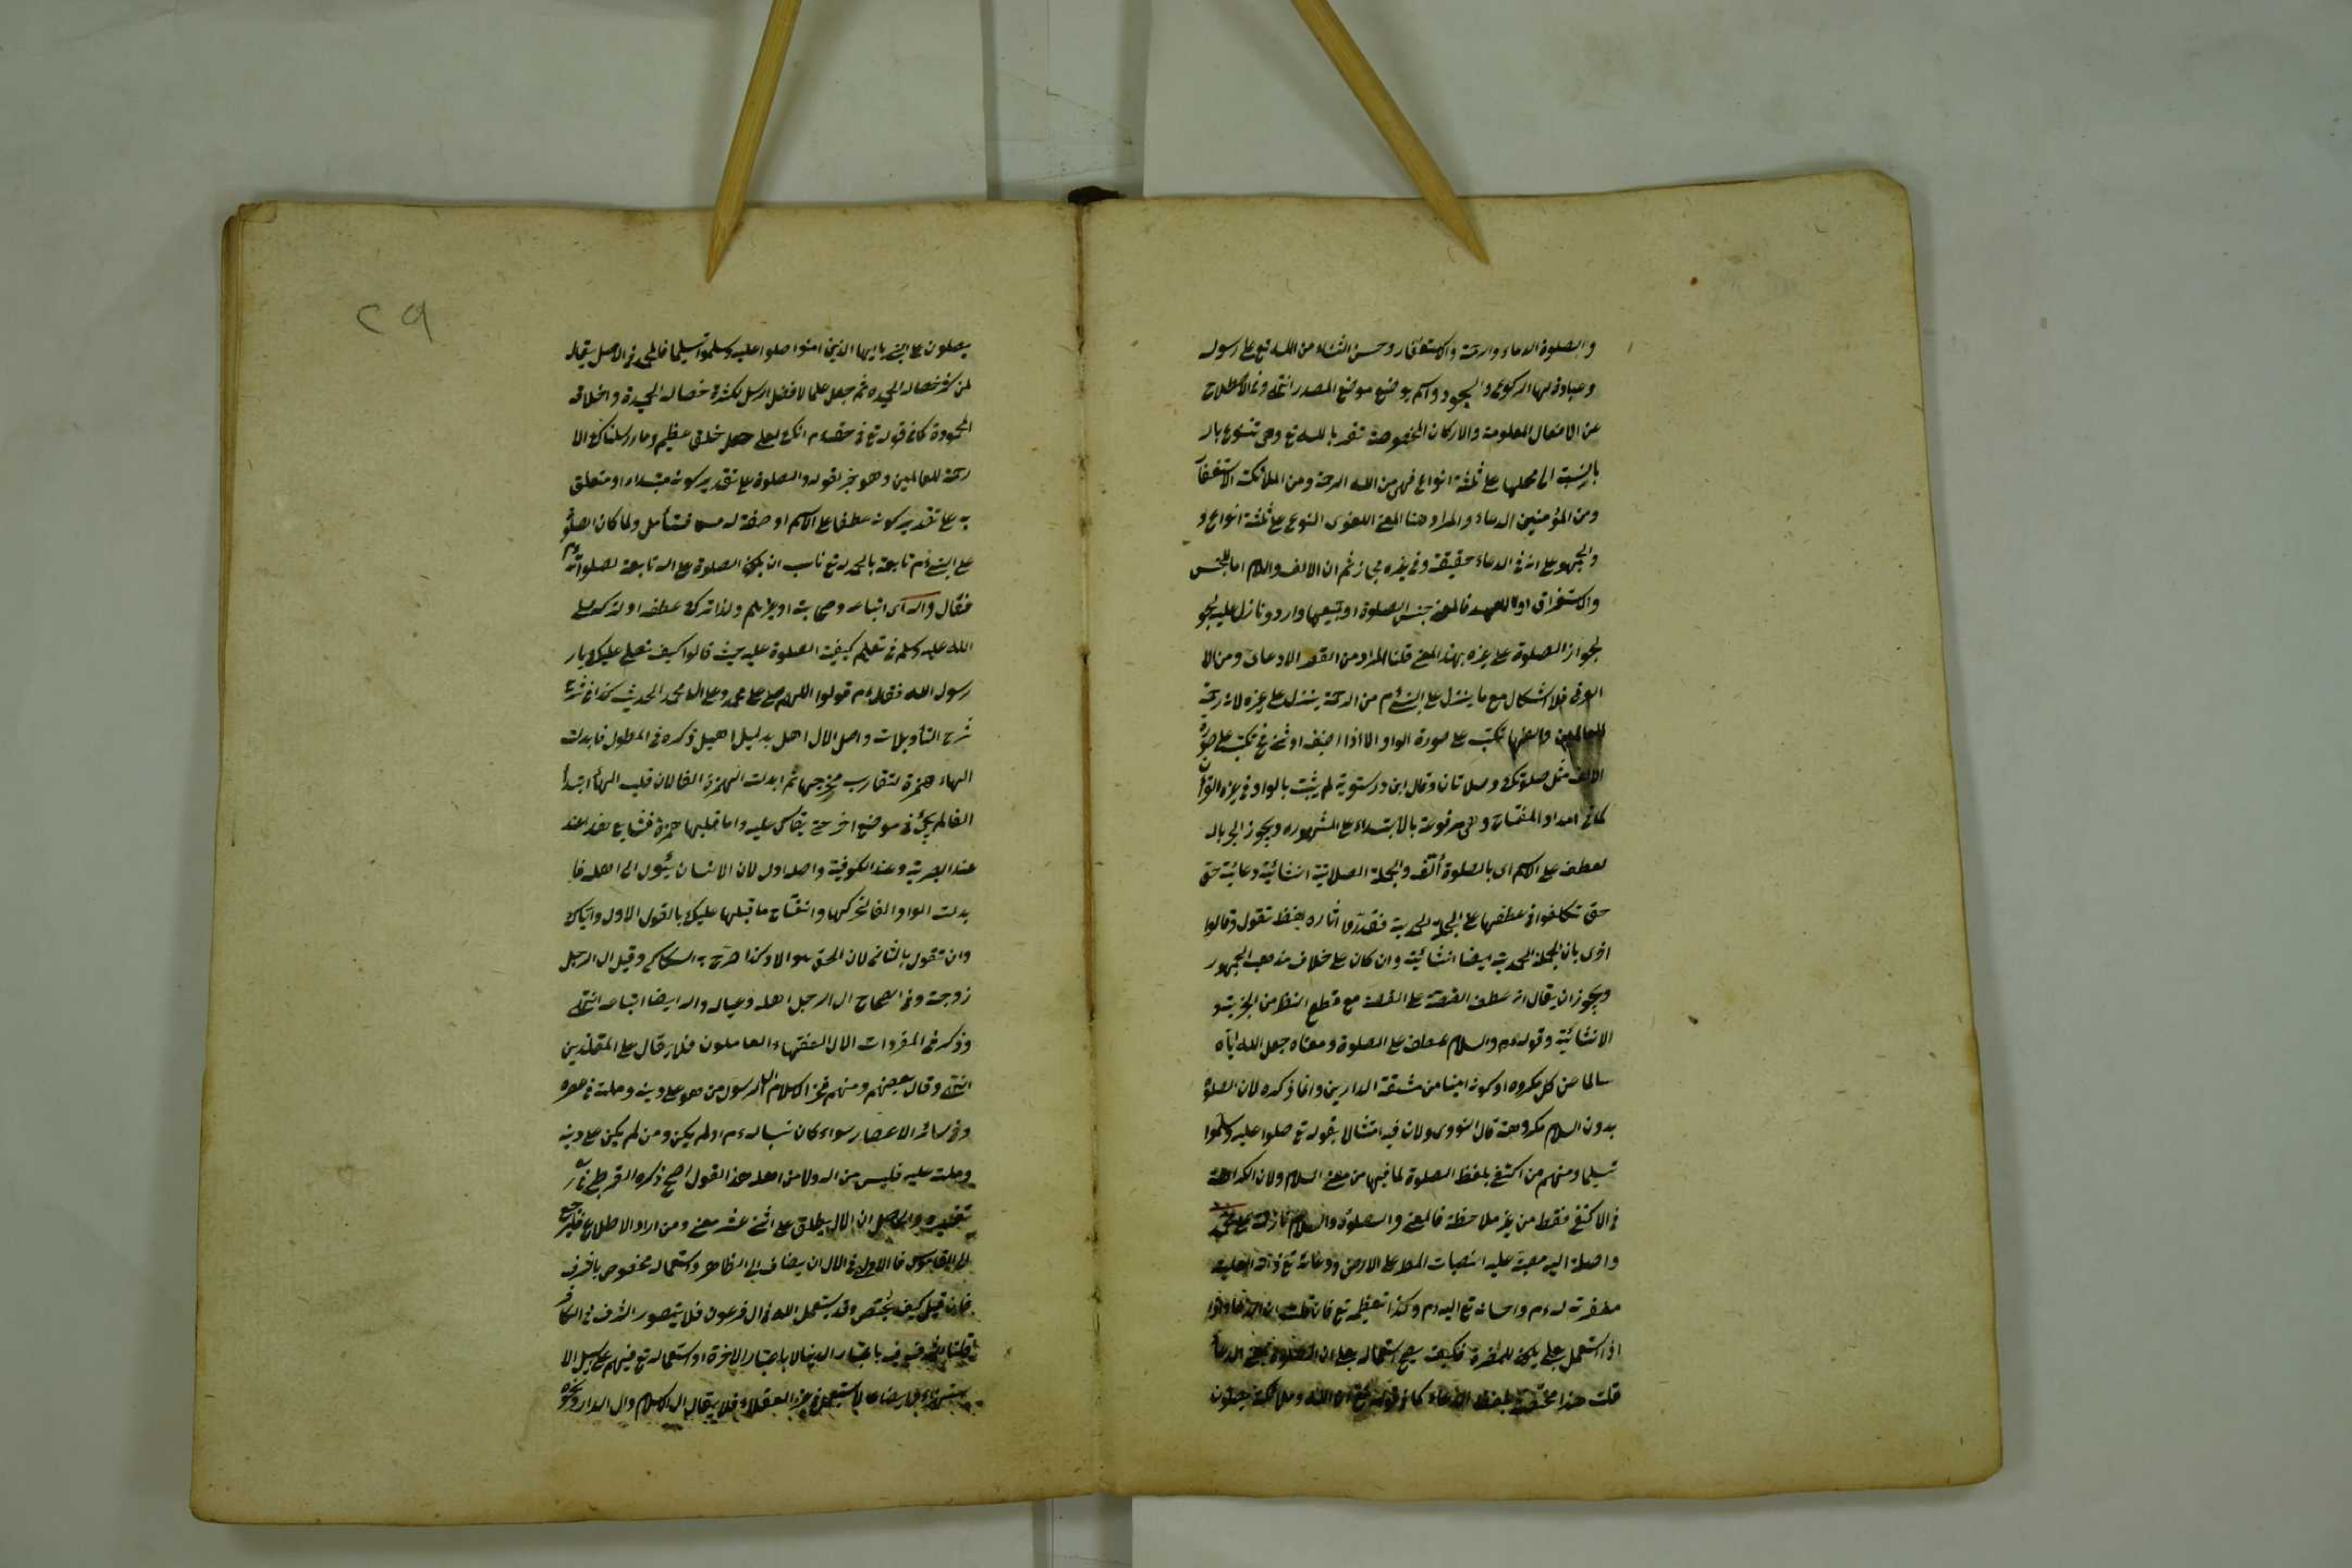 والصلوة الدعاء والرحمة والاستغفار وحسن الثناء من الله تع على رسوله
وعبادة لها الركوع والسجود واسم يوضع موضع المصدر انتهى وفي الاصطلاح
عن الافعال المعلومة والاركان المخصوصة تقربا لله تع وهى تتنوع بال
بالنسبة الى محلها على ثلثة انواع فهى من الله الرحمة ومن الملائكة الاستغفا
ومن المؤمنين الدعاء والمراد هنا المعنى اللغوى النوع على ثلثة انواع و
والجمهور على انه فى الدعاء حقيقة وفى غيره مجاز ثم ان الالف واللام اما للجنس
والاستغراق او للعهد فالمعنى جنس الصلوة او جميعها وارد ونازل عليه لجو
لجواز الصلوة على غيره بهذا المعنى قلنا المراد من القصر الادعاى ومن الا
العرفى فلا اشكال مع ما ينزل على النبى ءم من الرحمة ينزل على غيره لانه رحمة
للعالمين والفها تكتب على صورة الواو الا اذا اضيف او ثنى فح تكتب على صورة
الالف مثل صلوتك وصلاتان وقال ابن درستويه لم يثبت بالواو فى غيره القرآن
كما فى امداد الفتاح وهى مرفوعة بالابتداء على المشهوره ويجوز الجر بال
لعطف على الاسم اى بالصلوة اؤلف والجملة الصلاتية انشائية دعائية حتى
حتى تكلفوا فى عطفها على الجملة الحمدية فقدروا اثاره بلفظ تقول وقالوا
اخرى بان الجملة الحمدية ايضا انشائية وان كان على خلاف مذهب الجمهور
ويجوز ان يقال انه عطف القصة على القصة مع قطع النظر من الخبرية و
الانشائية وقوله والسلام عطف على الصلوة ومعناه جعل الله اياه
سالما عن كل مكروه او كونه امينا من مشقة الدارين وانما ذكره لان الصلوة
بدون السلام مكروهة قال النووى ولان فيه امتثالا بقوله تع صلوا عليه وسلموا
تسليما ومنهم من اكتفى بلفظ الصلوة لما فيها من معنى السلام ولان الكراهة
فى الاكتفى فقط من غير ملاحظة فالمعنى والصلوة والسلام نازلة على محمد
واصلة اليه مصبة عليه انصباب المطر على الارض
مغفرته له ءم واحسانه تع اليه ءم وكذا تعظيمه تع فان قلت ان
اذا استعمل بعلى يكون للمضرة فكيف يصح استعماله بعلى ان الصلوة بمعنى الدعاء
قلت هذا مختص بلفظ الدعاء كما فى قوله تع ان الله وملائكته يصلون
٢٩
يصلون على النبى يا ايها الذين امنوا صلوا عليه وسلموا تسليما فالمحمد فى الاصل يقال
لمن كثر خصاله الحميدة ثم جعل علما لافضل الرسل بكثرة خصاله الحميدة واخلاقه
المحمودة كما فى قوله تع فى حقه ءم انك لعلى خلق عظيم وما ارسلناك الا
رحمة للعالمين وهو خبر لقوله والصلوة على تقدير كونه مبتداء او متعلق
به على تقدير كونه عطفا على الاسم او صفة له فتأمل ولما كان الصلوة
على النبى ءم تابعة بالحمد له تع ناسب ان يكون الصلوة على اله تابعة لصلواته ءم
فقال واله اى اتباعه وصحابته او غيرهم ولذا ترك عطفه او تركه صلى
الله عليه وسلم فى تعليم كيفية الصلوة عليه حيث قالوا كيف نصلى عليك يا ر
رسول الله فقال ءم قولوا اللهم صل على محمد وعلى ال محمد الحديث كذا فى شرح
شرح التأويلات واصل الال اهل بدليل اهيل ذكره فى المطول فابدلت
الهاء همزة لتقارب مخرجهما ثم ابدلت الهمزة الفا لان قلب الهاء ابتداء
الفا لم يجئ فى موضع اخر حتى يقاس عليه واما قلبها همزة فشايع هذا عند
عند البصرية وعند الكوفية واصله اول لان الانسان يئول الى اهله فا
بدلت الواو الفا لتحركها وانفتاح ما قبلها عليك بالقول الاول واياك
وان تقول بالثانى لان الحق هو الاول كذا صرح به السكاكى وقيل ال الرجل
زوجته وفى الصحاح ال الرجل اهله وعياله واله ايضا اتباعه انتهى
وذكر فى المفردات الال الفقهاء العاملون فلا يقال على المقلدين
انتهى وقال بعضهم ومنهم فخر الاسلام ال الرسول من هو على دينه وملته فى عصره
وفى سائر الاعصار سواء كان نسباله ءم او لم يكن ومن لم يكن على دينه
وملته عليه فليس من اله ولا من اهله هذا القول اصح ذكره القرطبى فى
تفسيره والحاصل ان الال يطلق على اثنى عشر معنى ومن اراد الاطلاع فليرجع
الى القاموس فالاولى فى الال ان يضاف الى الظاهر واستعماله مخصوص باشرف
فان قيل كيف يختص وقد يستعمل الله فى ال فرعون فلا يتصور الشرف فى الكافر
قلنا الشرف فيه باعتبار الدنيا لا باعتبار الاخرة او استعماله تع فيهم على سبيل الا
ستهزاء وايضا لا يستعمل فى غير العقلاء فلا يقال ال الاسلام وال الدار ونحوه